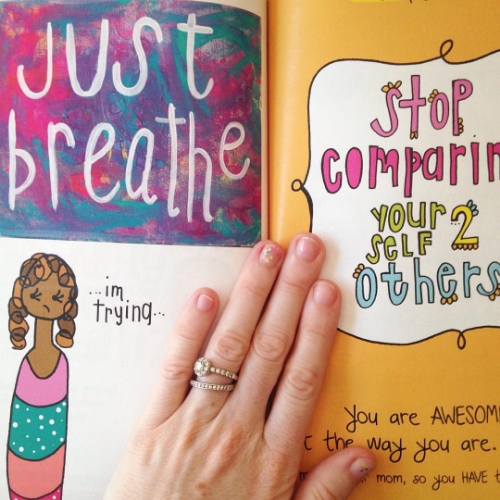 just
breathe
...im
trying...
stop
comparin
your
self 2
others
You are AWESOM
t the way you are.
mom, so you HAVE t